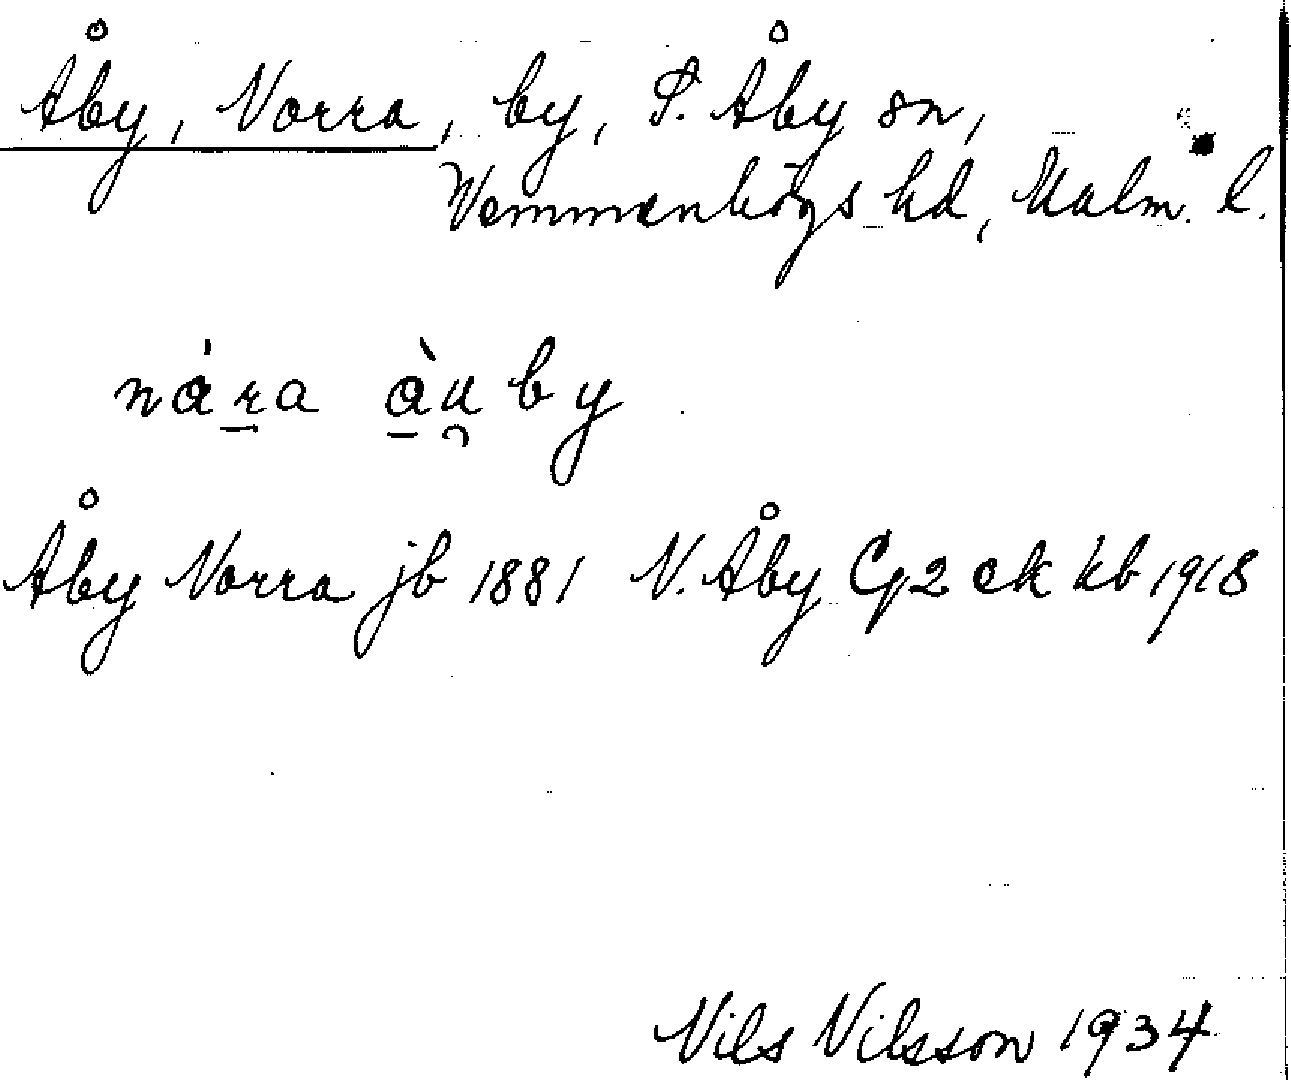 Åby, Norra, by, S. Åby sn,
Vemmenhögs hd, Malm. l.
nára àu̯by
Åby Norra jb 1881 N. Åby Gg2 ek kb 1918
Nils Nilsson 1934